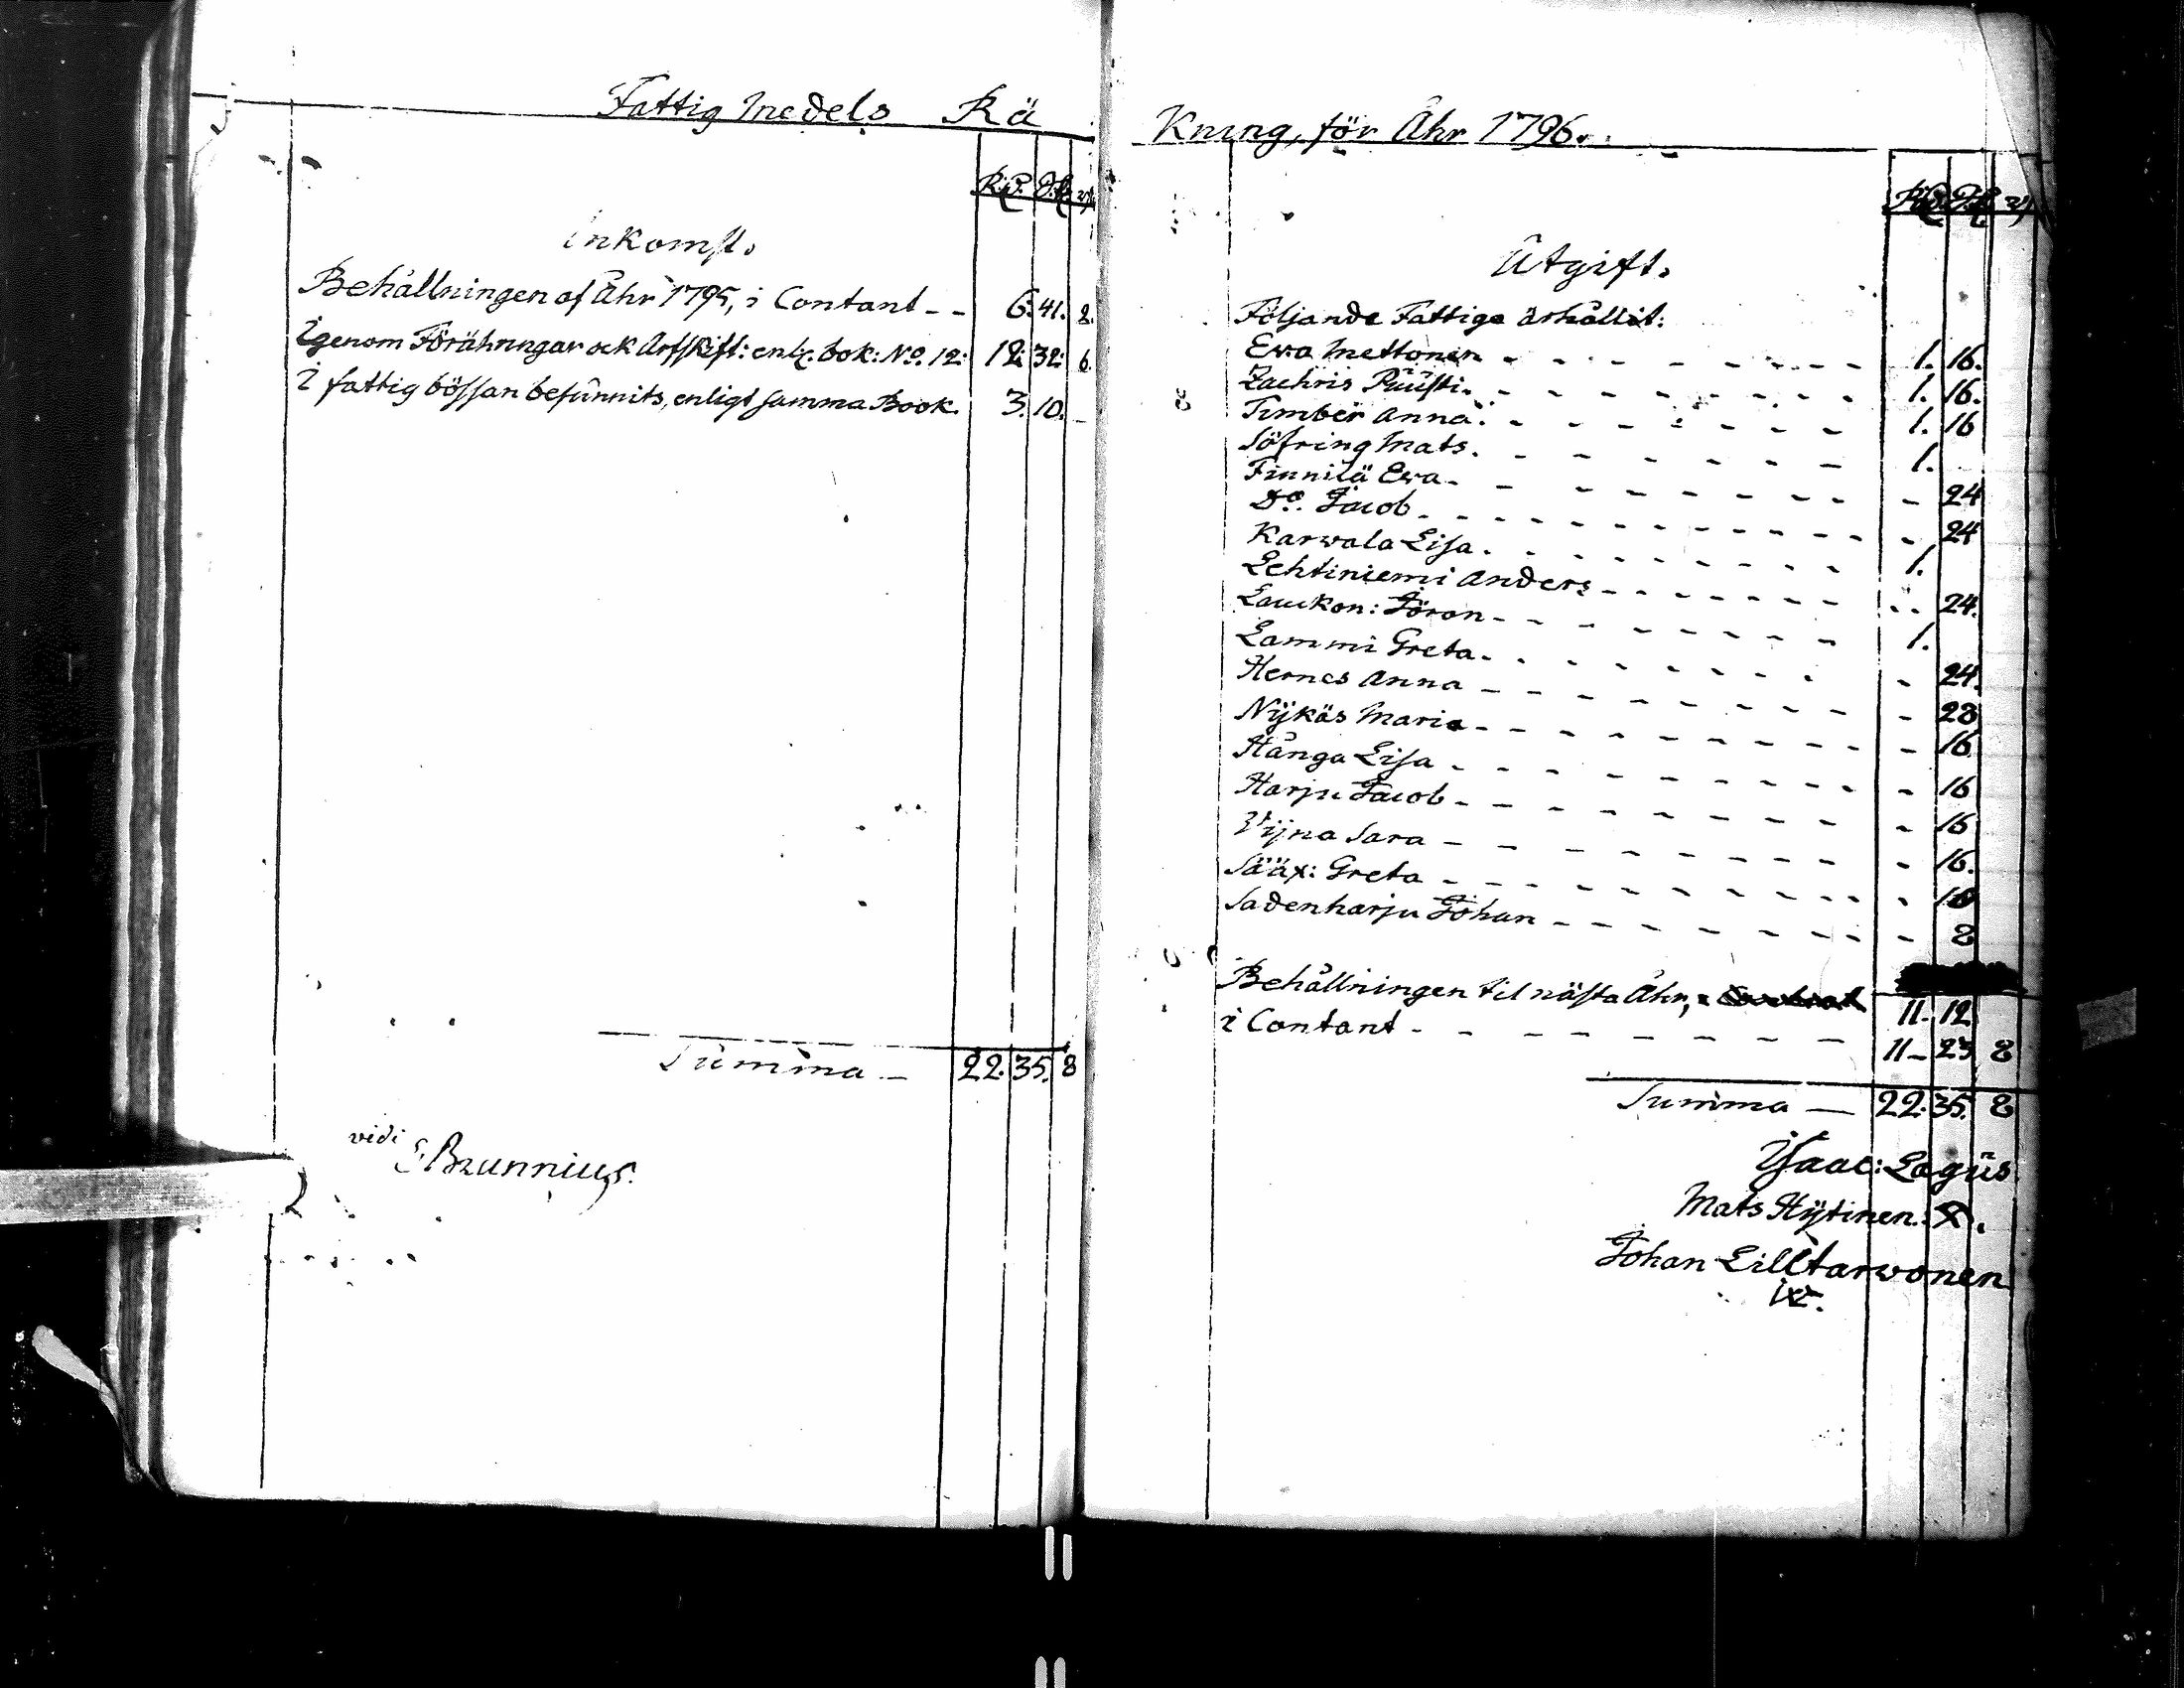 Fattig Medels Rä
Rd. Sk. r.
Inkomst.
Behållningen af Åhr 1795, i Contant - - 6. 41. 2.
Igenom Förähringar ock Arfskift: enl. bok: No. 12: 12. 32. 6.
I fattig bössan befunnits, enligt samma Book. 3. 10. -
Summa - 22. 35. 8
vidi Brunnius.
Kning, för Åhr 1796.
Rd. Sk. r.
Utgift.
Följande Fattige ärhållit:
Ewa Mettonen - - - 1. 16.
Zachris Puusti. - - - 1. 16.
Timber Anna. - - - 1. 16
Söfring Mats. - - - 1.
Finnilä Ewa. - - - 24
Do. Jacob - - - 24
Karwala Lisa. - - - 1.
Lehtiniemi Anders - - - 24.
Lauckon: Jöran - - - 1.
Lammi Greta. - - - 24.
Hernes Anna - - - 28
Nÿkäs Maria - - - 16
Hånga Lisa - - - 16
Harju Jacob - - - 16
Vijna Sara - - - 16.
Sääx: Greta - - -
Sadenharju Johan - - - 8
11. 12
Behållningen til nästa Åhr,
i Contant - - - 11 - 23 8
Summa — 22. 35. 8
Isaac: Lagus
Mats Hÿtinen.
Johan Lilltarwonen